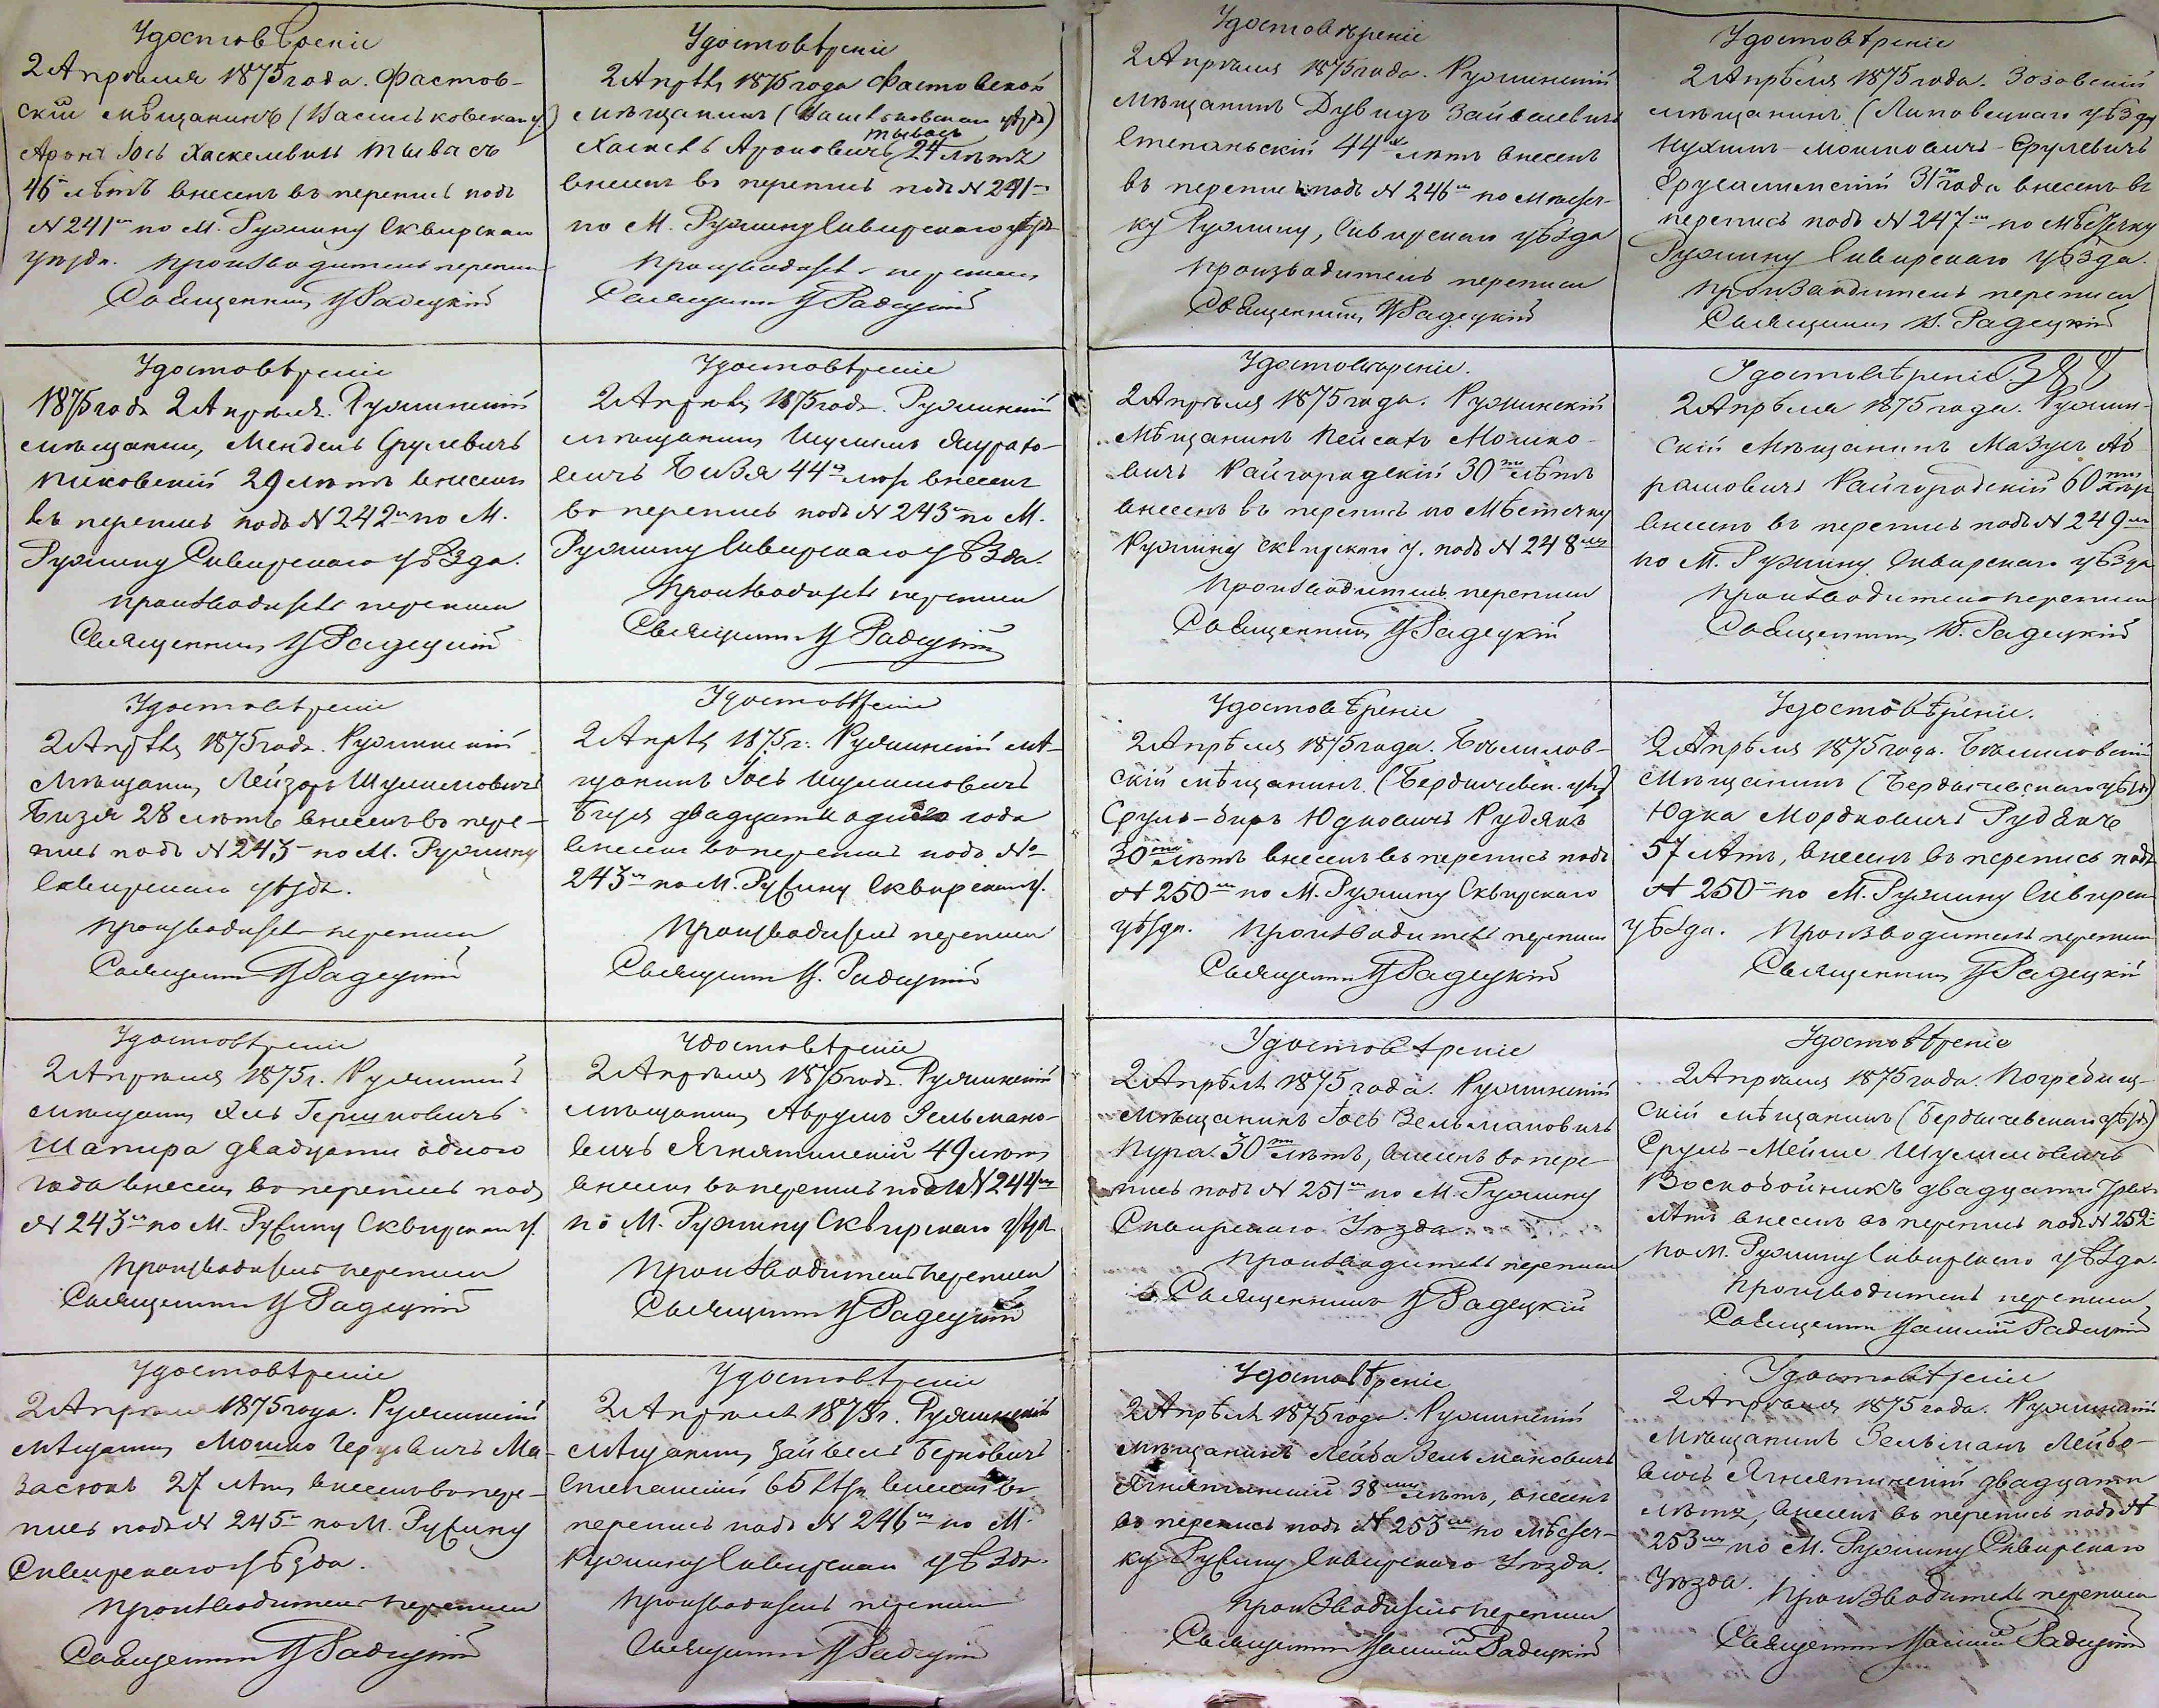 Удостовѣреніе
2 Апрѣля 1875 года. Фастов-
скій мѣщанинъ (Васильковскаго у)
Аронъ Іось Хаскелевичъ Тывасъ
46 лѣтъ внесенъ въ перепись подъ
№ 241 по М. Ружину Сквирскаго
уѣзда. Производитель переписи
Священникъ Радецкій
Удостовѣреніе
2 Апрѣля 1875 года Фастовскій
мѣщанинъ (Васильковскаго уѣзда)
Тывасъ
Хаскель Ароновичъ 24 лѣтъ
внесенъ въ перепись подъ № 241
по М. Ружину Сквирскаго уѣзда
Производитель переписи
Священникъ Радецкій
Удостовѣреніе
1875 года 2 Апрѣля. Ружинскій
мѣщанинъ Мендель Срулевичъ
Пиковскій 29 лѣтъ внесенъ
въ перепись подъ № 242 по М.
Ружину Сквирскаго уѣзда.
Производитель переписи
Священникъ Радецкій
Удостовѣреніе
2 Апрѣля 1875 года. Ружинскій
мѣщанинъ Шулимъ
Бизя 44 лѣтъ внесенъ
въ перепись подъ № 243 по М.
Ружину Сквирскаго уѣзда.
Производитель переписи
Священникъ Радецкій
Удостовѣреніе
2 Апрѣля 1875 года. Ружинскій
мѣщанинъ Лейзоръ Шулимовичъ
Бизя 28 лѣтъ внесенъ въ пере-
пись подъ № 243 по М. Ружину
Сквирскаго уѣзда.
Производитель переписи
Священникъ Радецкій
Удостовѣреніе
2 Апрѣля 1875 г. Ружинскій мѣ-
щанинъ Іось Шулимовичъ
двадцати одного года
внесенъ въ перепись подъ №
243 по М. Ружину Сквирскаго у.
Производитель переписи
Священникъ Радецкій
Удостовѣреніе
2 Апрѣля 1875 г. Ружинскій
мѣщанинъ Хиль Гершковичъ
Шапира двадцати одного
года внесенъ въ перепись подъ
№ 243 по М. Ружину Сквирскаго у.
Производитель переписи
Священникъ Радецкій
Удостовѣреніе
2 Апрѣля 1875 года. Ружинскій
мѣщанинъ Аврумъ Зельмано-
вичъ Ягнятинскій 49 лѣтъ
внесенъ въ перепись подъ № 244
по М. Ружину Сквирскаго уѣзда
Производитель переписи
Священникъ Радецкій
Удостовѣреніе
2 Апрѣля 1875 года. Ружинскій
мѣщанинъ Мошко Ма-
27 лѣтъ внесенъ въ пере-
пись подъ № 245 по М. Ружину
Сквирскаго уѣзда.
Производитель переписи
Священникъ Радецкій
Удостовѣреніе
2 Апрѣля 1875 г. Ружинскій
мѣщанинъ Зайвель Берковичъ
Степанскій 65 лѣтъ внесенъ въ
перепись подъ № 246 по М.
Ружину Сквирскаго уѣзда.
Производитель переписи
Священникъ Радецкій
Удостовѣреніе
2 Апрѣля 1875 года. Ружинскій
мѣщанинъ Дувидъ Зайвелевичъ
Степаньскій 44 лѣтъ внесенъ
въ перепись подъ № 246 по мѣстеч-
ку Ружину, Сквирскаго уѣзда
Производитель переписи
Священникъ Радецкій
Удостовѣреніе
2 Апрѣля 1875 года. Зозовскій
мѣщанинъ (Липовецкаго уѣзда)
Нухимъ-Мошковичъ-Срулевичъ
31 года внесенъ въ
перепись подъ № 247 по мѣстечку
Ружину Сквирскаго уѣзда.
Производитель переписи
Священникъ Радецкій
Удостовѣреніе.
2 Апрѣля 1875 года. Ружинскій
мѣщанинъ Пейсахъ Мошко-
вичъ Райгородскій 30ти лѣтъ
внесенъ въ перепись по мѣстечку
Ружину Сквирскаго у. подъ № 248
Производитель переписи
Священникъ Радецкій
Удостовѣреніе
2 Апрѣля 1875 года. Ружин-
скій мѣщанинъ Мазуръ Аб-
рамовичъ Райгородскій 60ти лѣтъ
внесенъ въ перепись подъ № 249
по М. Ружину Сквирскаго уѣзда
Производитель переписи
Священникъ Радецкій
Удостовѣреніе
2 Апрѣля 1875 года. Бѣлилов-
скій мѣщанинъ (Бердичевск. уѣзд)
Сруль-Беръ Юдковичъ Рудякъ
30ти лѣтъ внесенъ въ перепись подъ
№ 250 по М. Ружину Сквирскаго
уѣзда. Производитель переписи
Священникъ Радецкій
Удостовѣреніе.
2 Апрѣля 1875 года. Бѣлиловскій
мѣщанинъ (Бердичевскаго уѣзда)
Юдка Мордковичъ Рудякъ
57 лѣтъ, внесенъ въ перепись подъ
№ 250 по М. Ружину Сквирск.
уѣзда. Производитель переписи
Священникъ Радецкій
Удостовѣреніе
2 Апрѣля 1875 года. Ружинскій
мѣщанинъ Іось Зельмановичъ
Пура 30ти лѣтъ, внесенъ въ пере-
пись подъ № 251 по М. Ружину
Сквирскаго Уѣзда.
Производитель переписи
Священникъ Радецкій
Удостовѣреніе
2 Апрѣля 1875 года. Погребищ-
скій мѣщанинъ (Бердичевскаго уѣзд)
Сруль-Мейше Шулимовичъ
Воскобойникъ двадцати трехъ
лѣтъ внесенъ въ перепись подъ № 252
по М. Ружину Сквирскаго уѣзда.
Производитель переписи
Священникъ Радецкій
Удостовѣреніе
2 Апрѣля 1875 года. Ружинскій
мѣщанинъ Лейба Зельмановичъ
Ягнятинскій 38 лѣтъ, внесенъ
въ перепись подъ № 253 по мѣстеч-
ку Ружину Сквирскаго Уѣзда.
Производитель переписи
Священникъ Радецкій
Удостовѣреніе
2 Апрѣля 1875 года. Ружинскій
мѣщанинъ Зельманъ Лейбо-
вичъ Ягнятинскій двадцати
лѣтъ, внесенъ въ перепись подъ №
253 по М. Ружину Сквирскаго
Уѣзда. Производитель переписи
Священникъ Радецкій